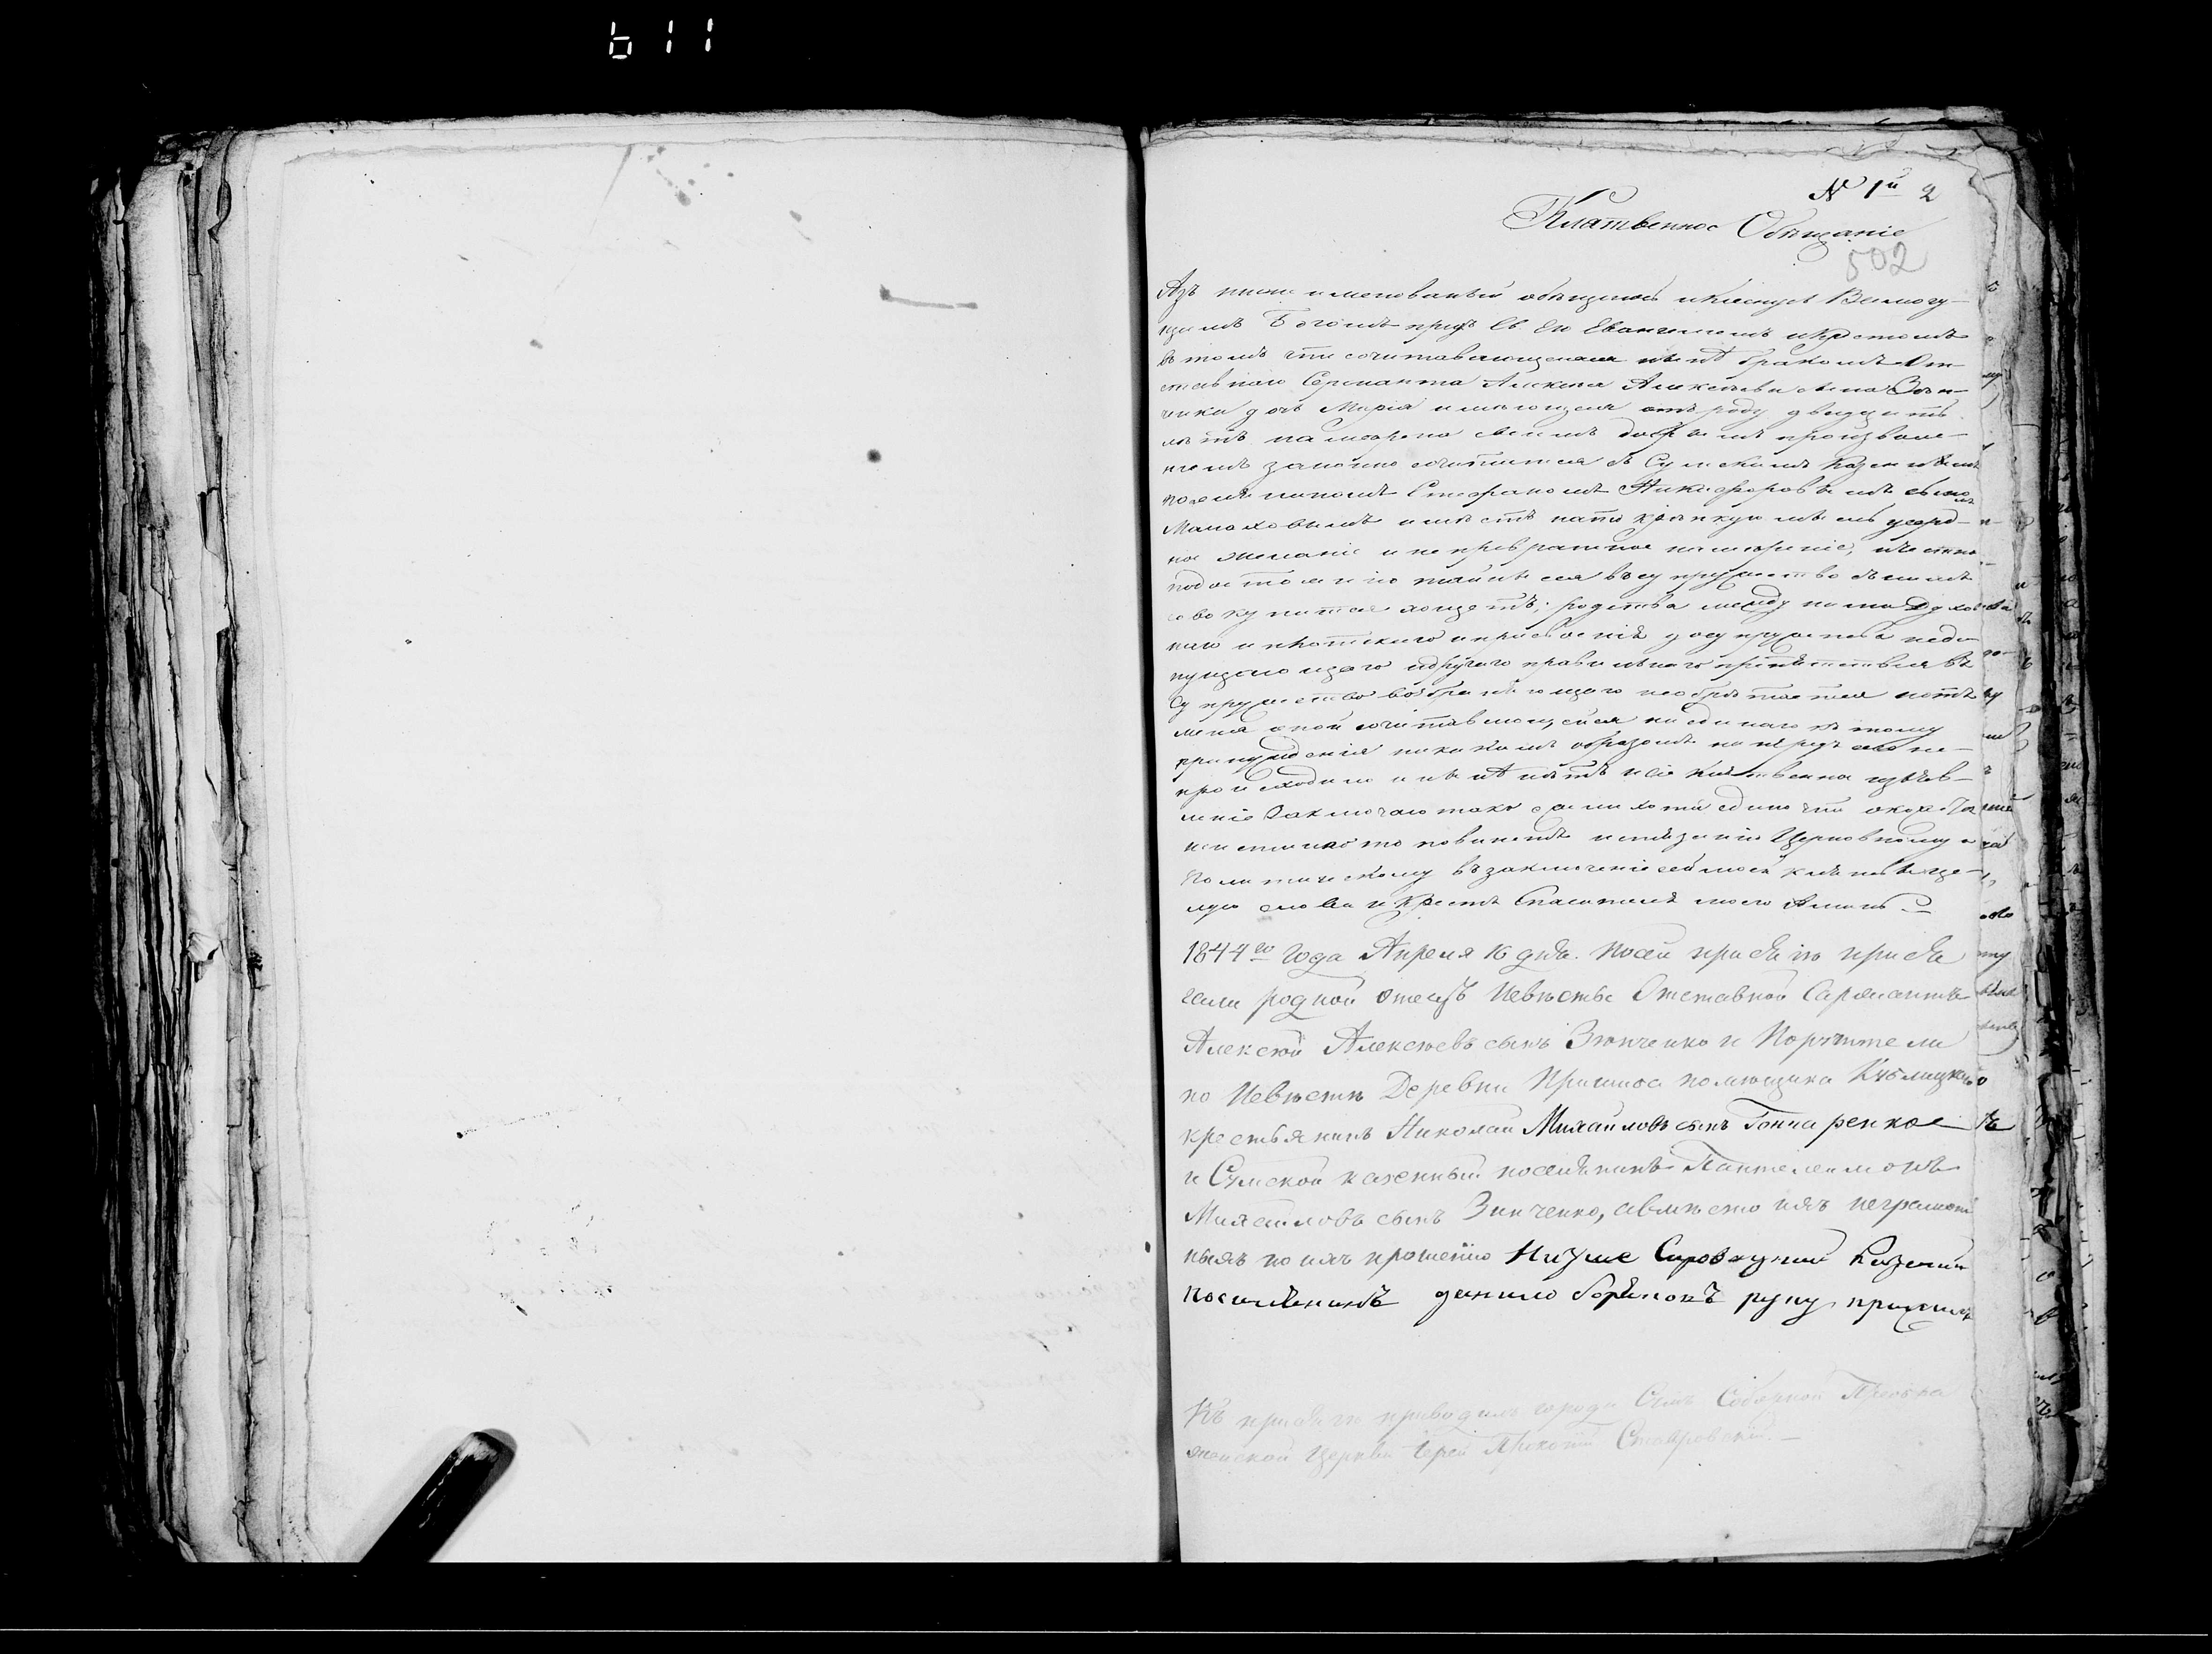 611
№ 1й 2
Клятвенное Обѣщаніе
502
Азъ ниже именованный обѣщаюсь и кленусь Всемогу-
щимъ Богомъ предъ Св Его Евангелиемъ и Крестомъ
въ томъ что сочитавающаяся нынѣ бракомъ От-
ставного Сержанта Алексея Алексѣева сына Зѣн-
ченка дочь Марія имѣющая отъ роду двадцать
лѣтъ намѣрена своимъ добрымъ произволе-
ніемъ законно сочитатся съ Сумскимъ Казеннымъ
поселяниномъ Стефаномъ Никифоровымъ сыномъ
Малаховымъ имѣетъ на то крѣпкую мысль усерд-
ное желаніе и непревратное намѣреніе, и честно
по достоянію тайны сея въ супружество съ нимъ
совокупится хощетъ; родства между ними Духов-
наго и плотскаго и присвоенія до супружества недо-
пущающаго и другаго правильнаго препятствія въ
Супружество возбраняющаго необрѣтается и отъ
меня оной сочитавающейся ни единаго къ тому
принужденія никакимъ образомъ напредъ сего не-
происходило и нынѣ нѣтъ и сіе клятвенно изъяв-
леніе Заключаю тако если хотя едино что окажется
неистинно то повиненъ истязанію Церковному и
Политическому въ заключеніе сей моей клятвы це-
лую слова и Крестъ Спасителя моего Аминь
1844го года Апреля 16 дня. По сей присягѣ прися
гали родной отецъ Невѣсты Отставной Сержантъ
Алексѣй Алексѣевъ сынъ Зѣнченко и Поручители
по Невѣстѣ Деревни помѣщика
крестьянинъ Николай Михайловъ сынъ Гончаренко
и Сумской казенный поселянинъ Пантелеимонъ
Михайловъ сынъ Зинченко, а вмѣсто ихъ неграмот
ныхъ по ихъ прошенію Казенный
поселянинъ данило руку приложилъ
Къ присягѣ приводилъ города Сумъ Соборной Преобра
женской Церкви Іерей Прокопій Ставровскій.